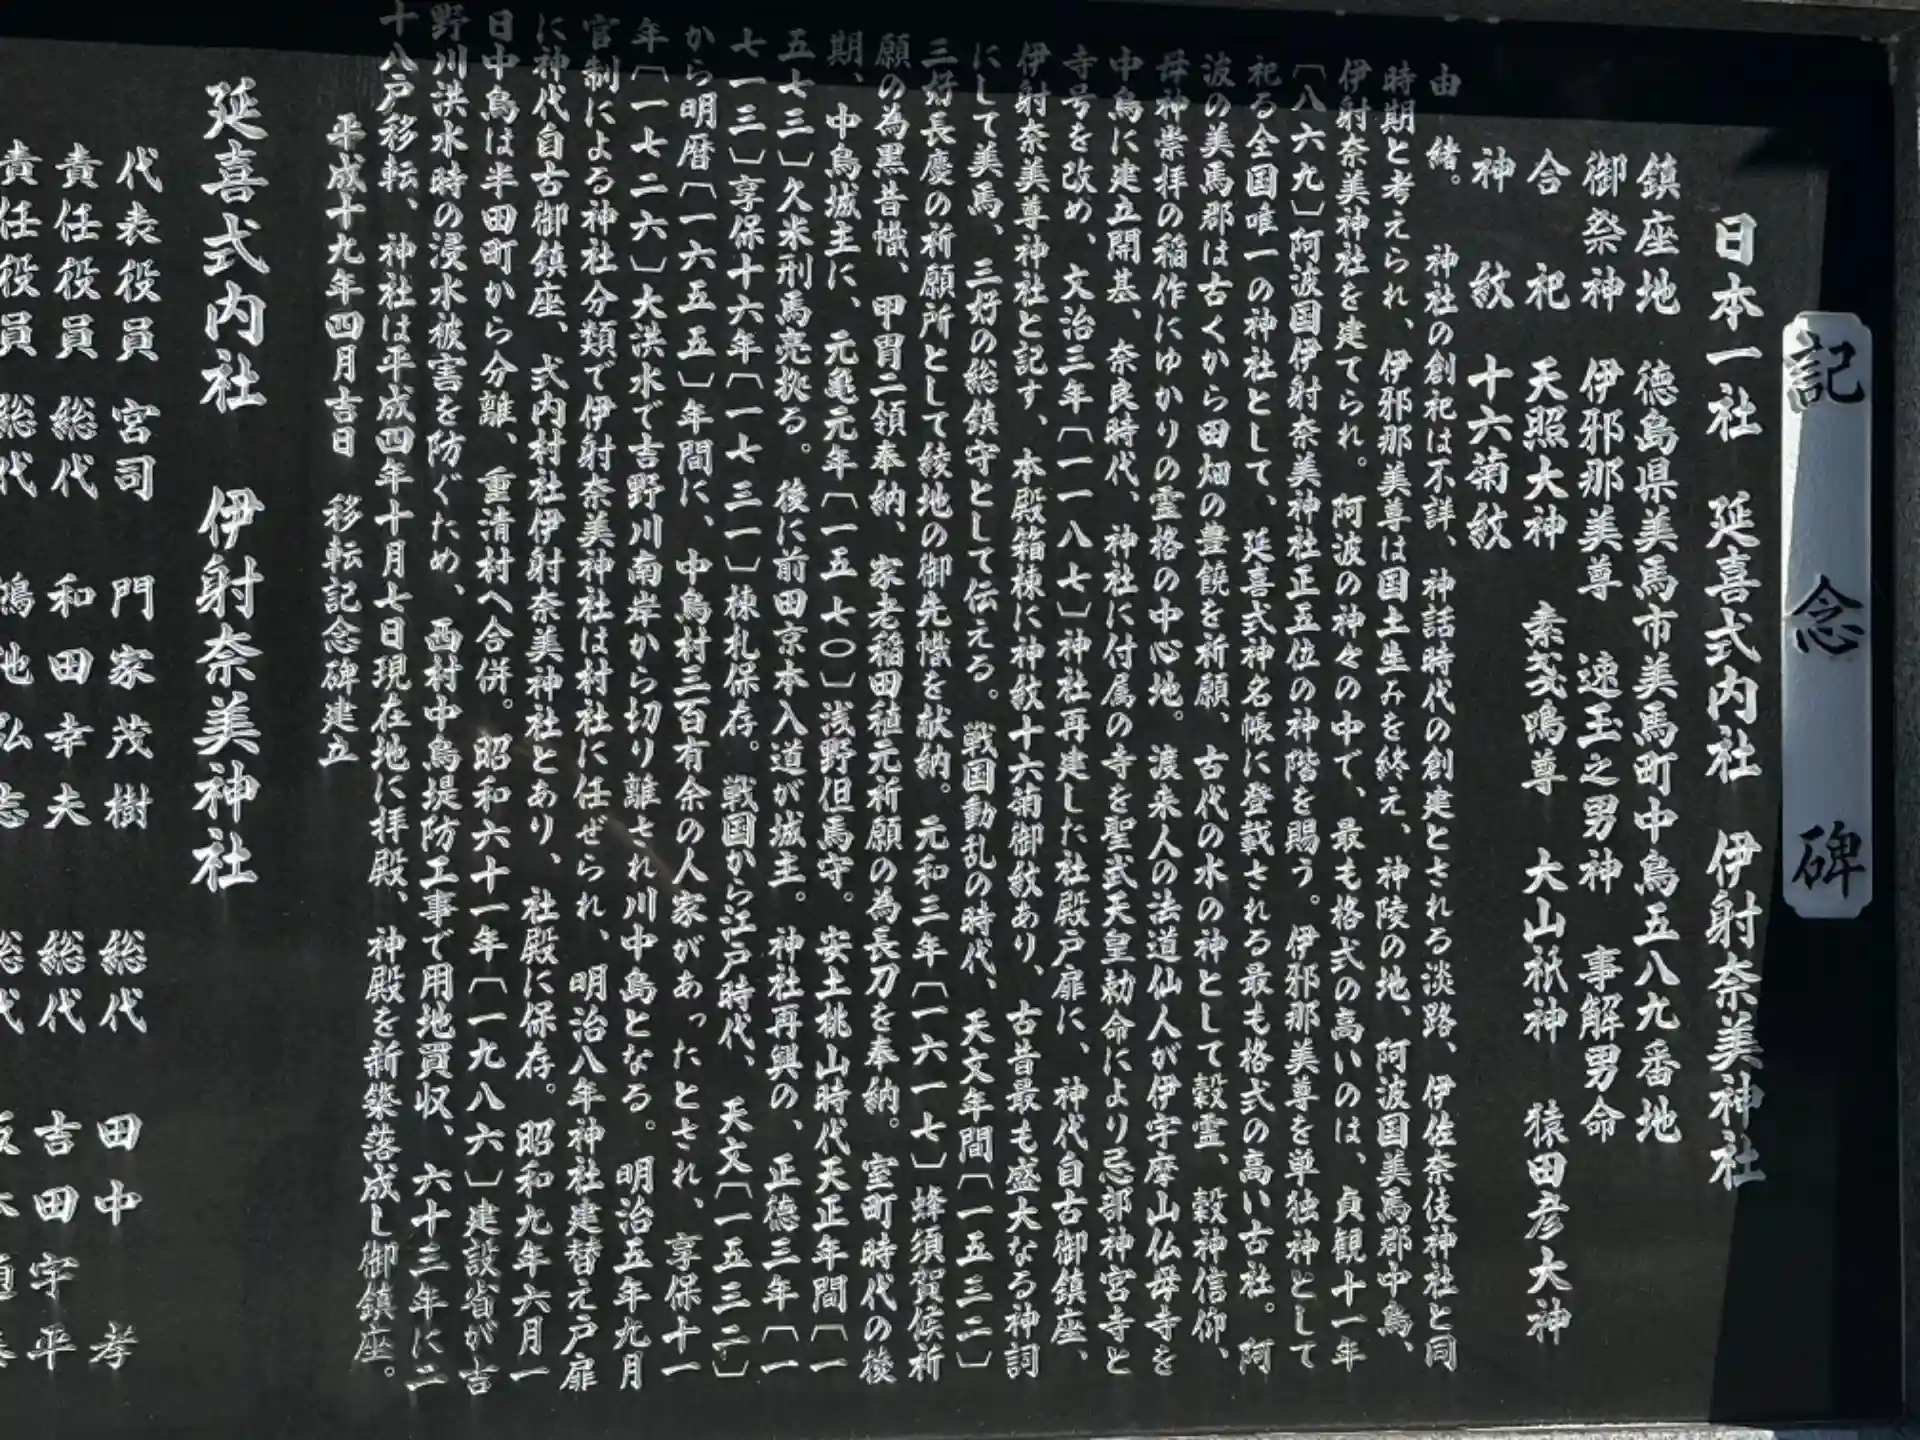 記念碑
日本一社 延喜式内社 伊射奈美神社
鎮座地 徳島県美馬市美馬町中鳥五八九番地
御祭神 伊邪那美尊 速玉之男神 事解男命
合祀 天照大神 素戔嗚尊 大山祇神 猿田彦大神
神紋 十六菊紋
由緒。 神社の創祀は不詳、神話時代の創建とされる淡路、伊佐奈伎神社と同
時期と考えられ、伊邪那美尊は国土生みを終え、神陵の地、阿波国美馬郡中鳥、
伊射奈美神社を建てられ。阿波の神々の中で、最も格式の高いのは、貞観十一年
〔八六九〕阿波国伊射奈美神社正五位の神階を賜う。伊邪那美尊を単独神として
祀る全国唯一の神社として、延喜式神名帳に登載される最も格式の高い古社。阿
波の美馬郡は古くから田畑の豊饒を祈願、古代の水の神として穀霊、穀神信仰、
母神崇拝の稲作にゆかりの霊格の中心地。渡来人の法道仙人が伊字摩山仏母寺を
中鳥に建立開基、奈良時代、神社に付属の寺を聖武天皇勅命により忌部神宮寺と
寺号を改め、文治三年〔一一八七〕神社再建した社殿戸扉に、神代自古御鎮座、
伊射奈美尊神社と記す、本殿箱棟に神紋十六菊御紋あり、古昔最も盛大なる神詞
にして美馬、三好の総鎮守として伝える。戦国動乱の時代、天文年間〔一五三二〕
三好長慶の祈願所として綾地の御先幟を献納。元和三年〔一六一七〕蜂須賀侯祈
願の為黒昔幟、甲冑二領奉納、家老稲田稙元祈願の為長刀を奉納。室町時代の後
期、中鳥城主に、元亀元年〔一五七〇〕浅野但馬守。安土桃山時代天正年間〔一
五七三〕久米刑馬亮拠る。後に前田京本入道が城主。神社再興の、正徳三年〔一
七一三〕享保十六年〔一七三一〕棟札保存。戦国から江戸時代、天文〔一五三二〕
から明暦〔一六五五〕年間に、中鳥村三百有余の人家があったとされ、享保十一
年〔一七二六〕大洪水で吉野川南岸から切り離され川中島となる。明治五年九月
官制による神社分類で伊射奈美神社は村社に任ぜられ、明治八年神社建替え戸扉
に神代自古御鎮座、式内村社伊射奈美神社とあり、社殿に保存。昭和九年六月一
日中鳥は半田町から分離、重清村へ合併。昭和六十一年〔一九八六〕建設省が吉
野川洪水時の浸水被害を防ぐため、西村中鳥堤防工事で用地買収、六十三年に二
十八戸移転、神社は平成四年十月七日現在地に拝殿、神殿を新築落成し御鎮座。
平成十九年四月吉日 移転記念碑建立
延喜式内社 伊射奈美神社
代表役員 宮司 門家茂樹 総代 田中孝
責任役員 総代 和田幸夫 総代 吉田宇平
責任役員 総代 鴻池弘志 総代